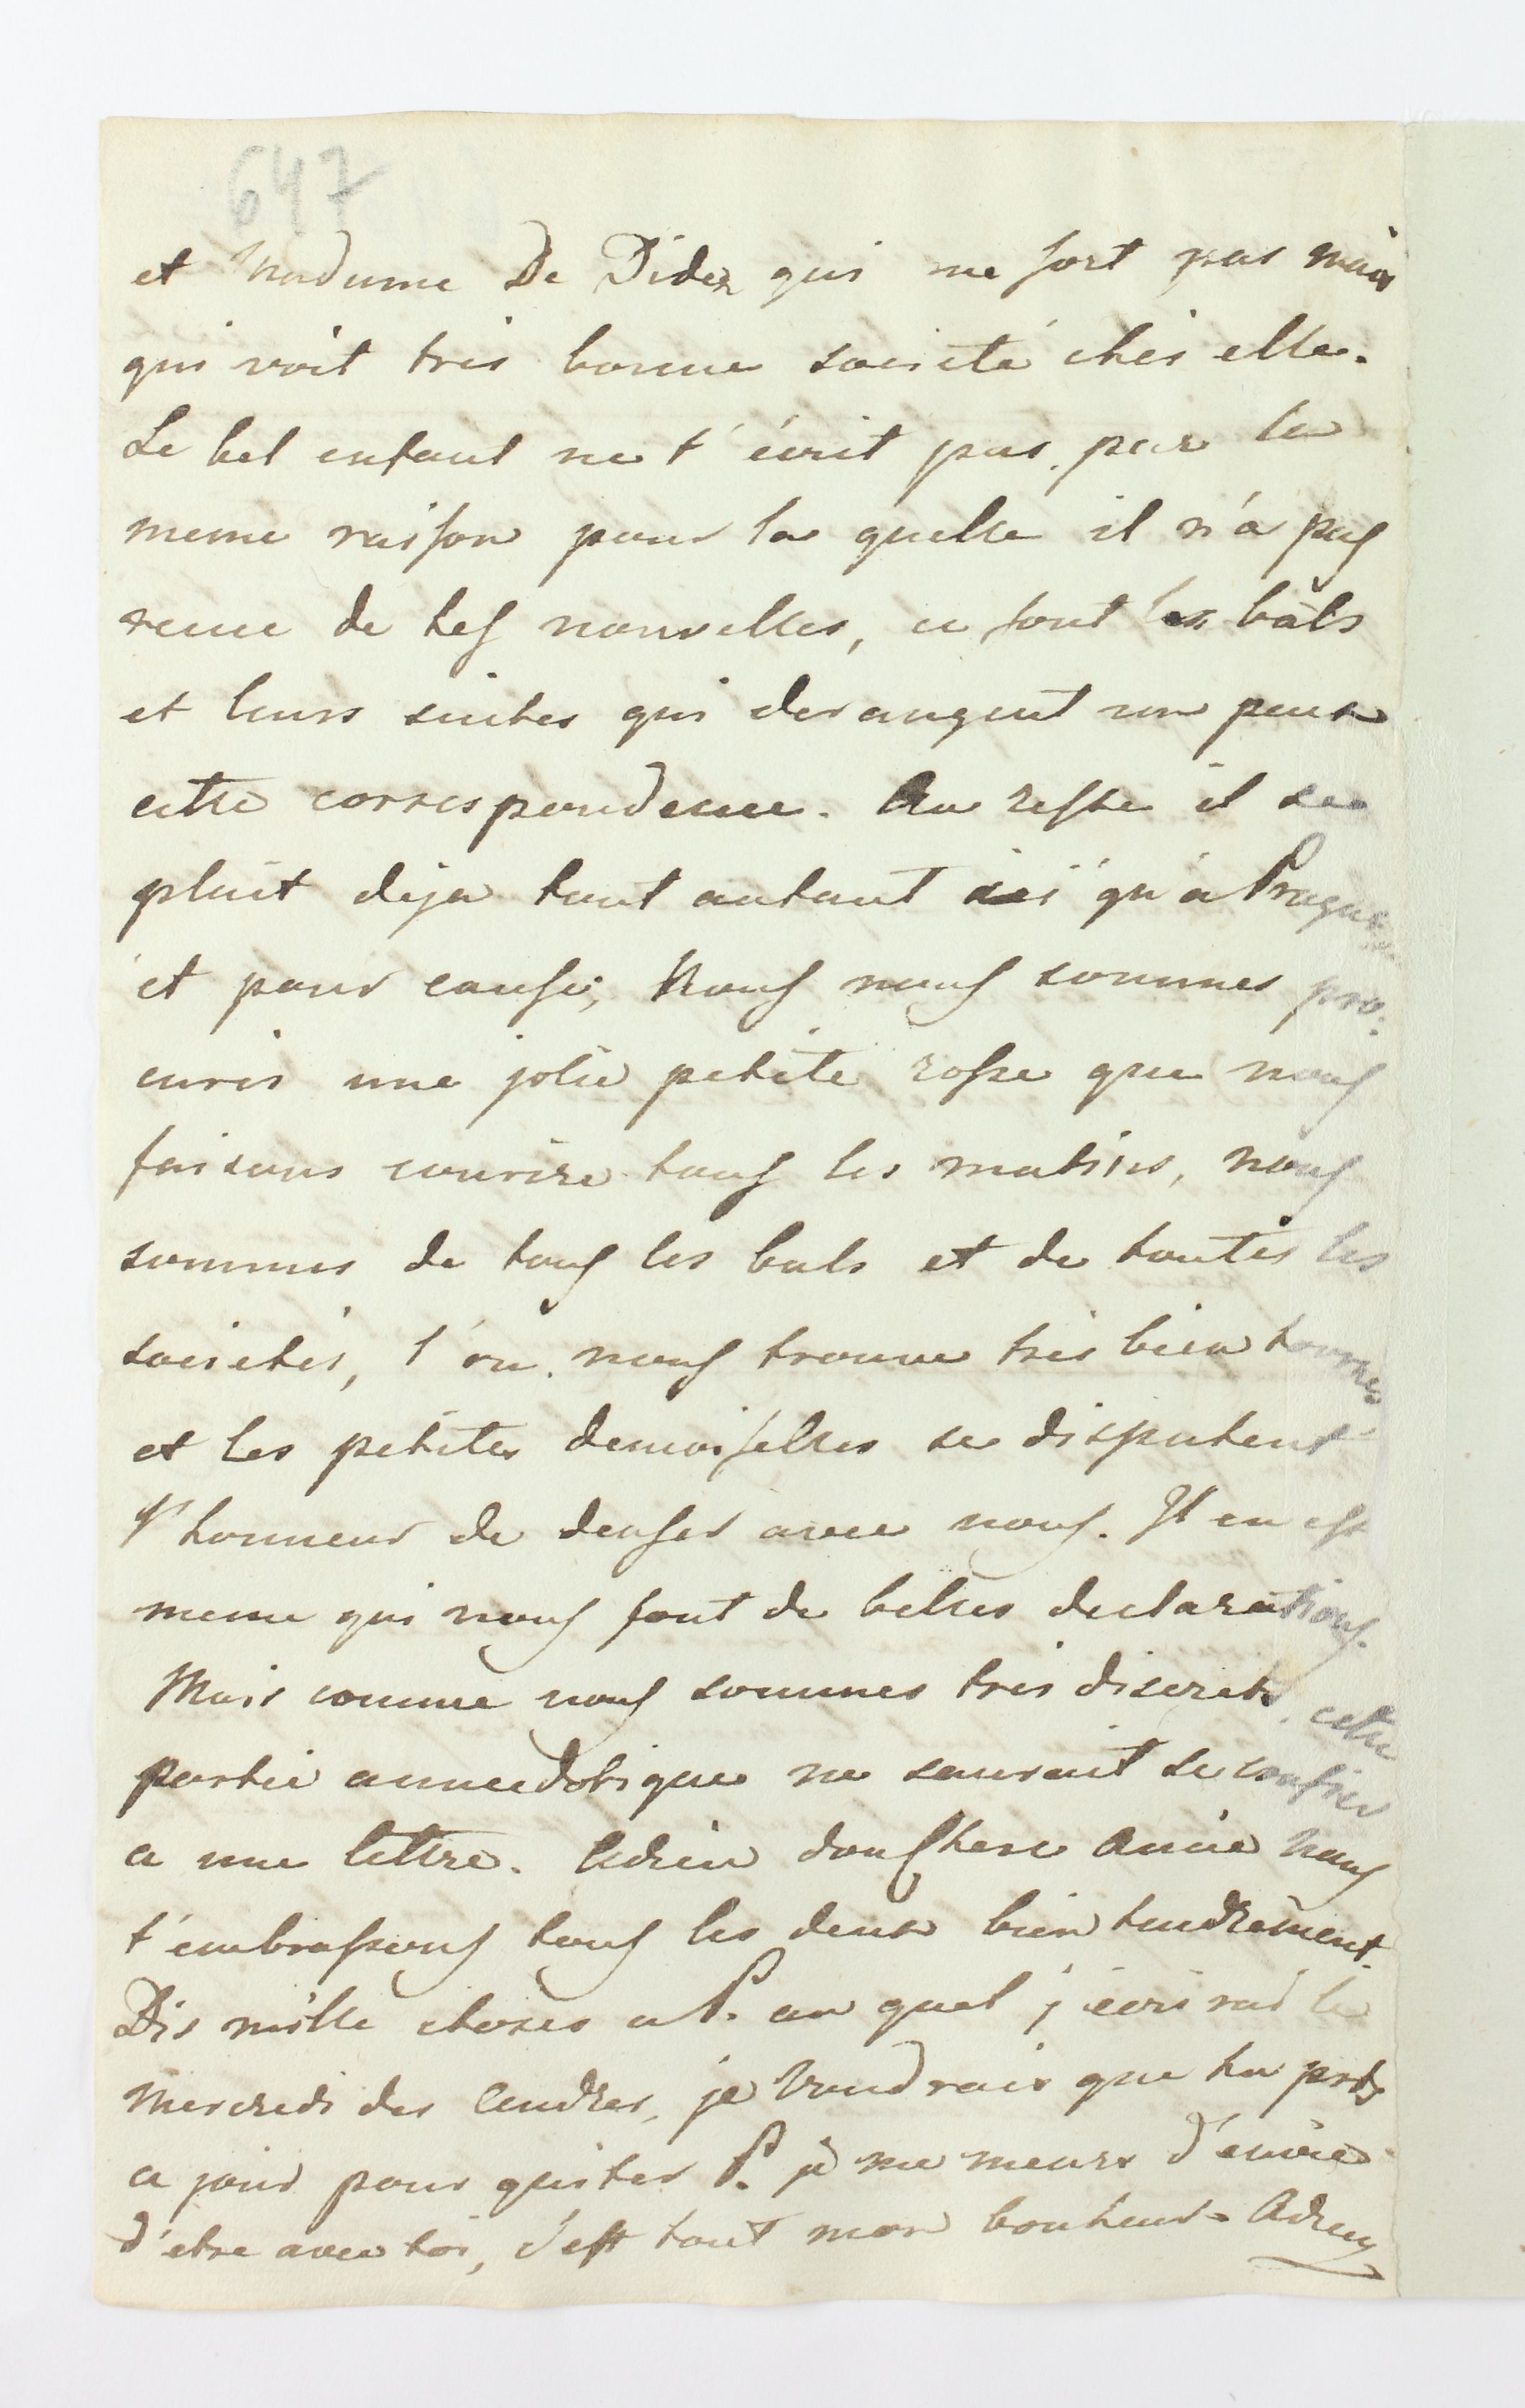 647
et madame De Dider qui ne sort pas mais
qui voit tres bonne societé chés elle.
Le bel enfant ne t'écrit pas par la
meme raison pour la quelle il n'a pas
recue de tes nouvelles, ce sont les bâls
et leurs suites qui derangent un peux
cette correspondence. Au reste il se
plait deja tout autant ici qu'a Prague
et pour cause, Nous nous sommes pro-
curés une jolie petite rosse que nous
faisons courire tous les matins, nous
sommes de tous les bals et de toutes les
societés, l'on nous trouve très bien tournés
et les petites demoiselles se disputent
l'honneur de denser avec nous. Il en est
meme qui nous font de belles declarations.
Mais comme nous sommes très discrets, cette
partie annecdotique ne saurait se confier
a une lettre. Adieu donc chere Amie nous
t'embrassons tous les deux bien tendrement.
Dis mille choses a P. au quel j'écrirai le
Mercredi des Cendres, je voudrais que tu
a jour pour quiter P. je me meurs d'envie
d'etre avec toi, c'est tout mon bonheur. Adieu